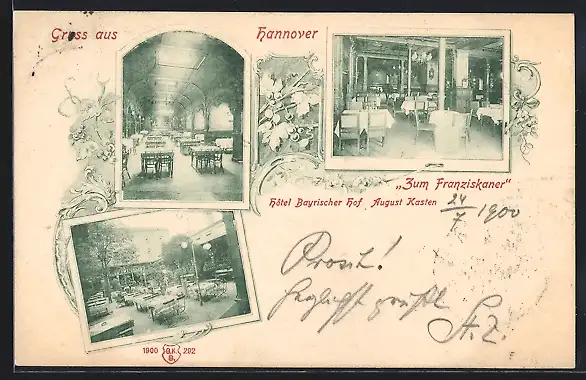 Gruss aus Hannover
„Zum Franziskaner"
Hôtel Bayrischer Hof August Kasten
24/7 1900
Prosit!
Herzlichst grüßt
St. Z.
1900 D.K. B. 202